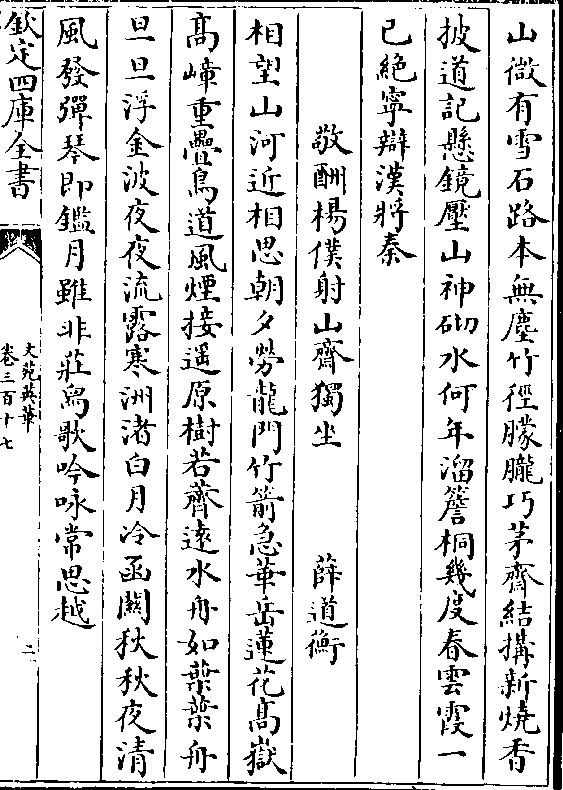 山微有雪石路本無塵竹徑朦朧巧茅齋結搆新燒香
披道記懸鏡壓山神砌水何年溜簷桐幾度春雲霞一
已絕寧辯漢將秦
敬酬楊僕射山齋獨坐　薛道衡
相望山河近相思朝夕勞龍門竹箭急華岳蓮花高嶽
高嶂重疊鳥道風煙接遥原樹若薺遠水舟如葉葉舟
旦旦浮金波夜夜流露寒洲渚白月冷函關秋秋夜清
風發彈琴即鑑月雖非莊舄歌吟咏常思越
欽定四庫全書
文苑英華
卷三百十七
二